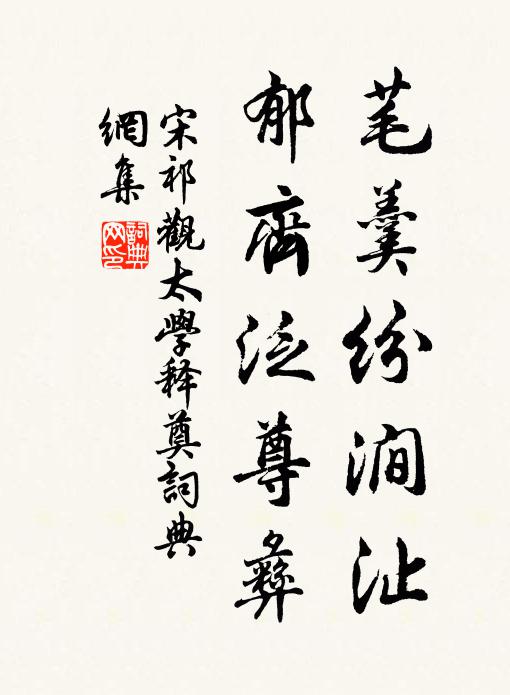 芼羹纷涧沚
郁齊泛尊彝
宋祁觀太學释奠詞典
網集
詞典网印